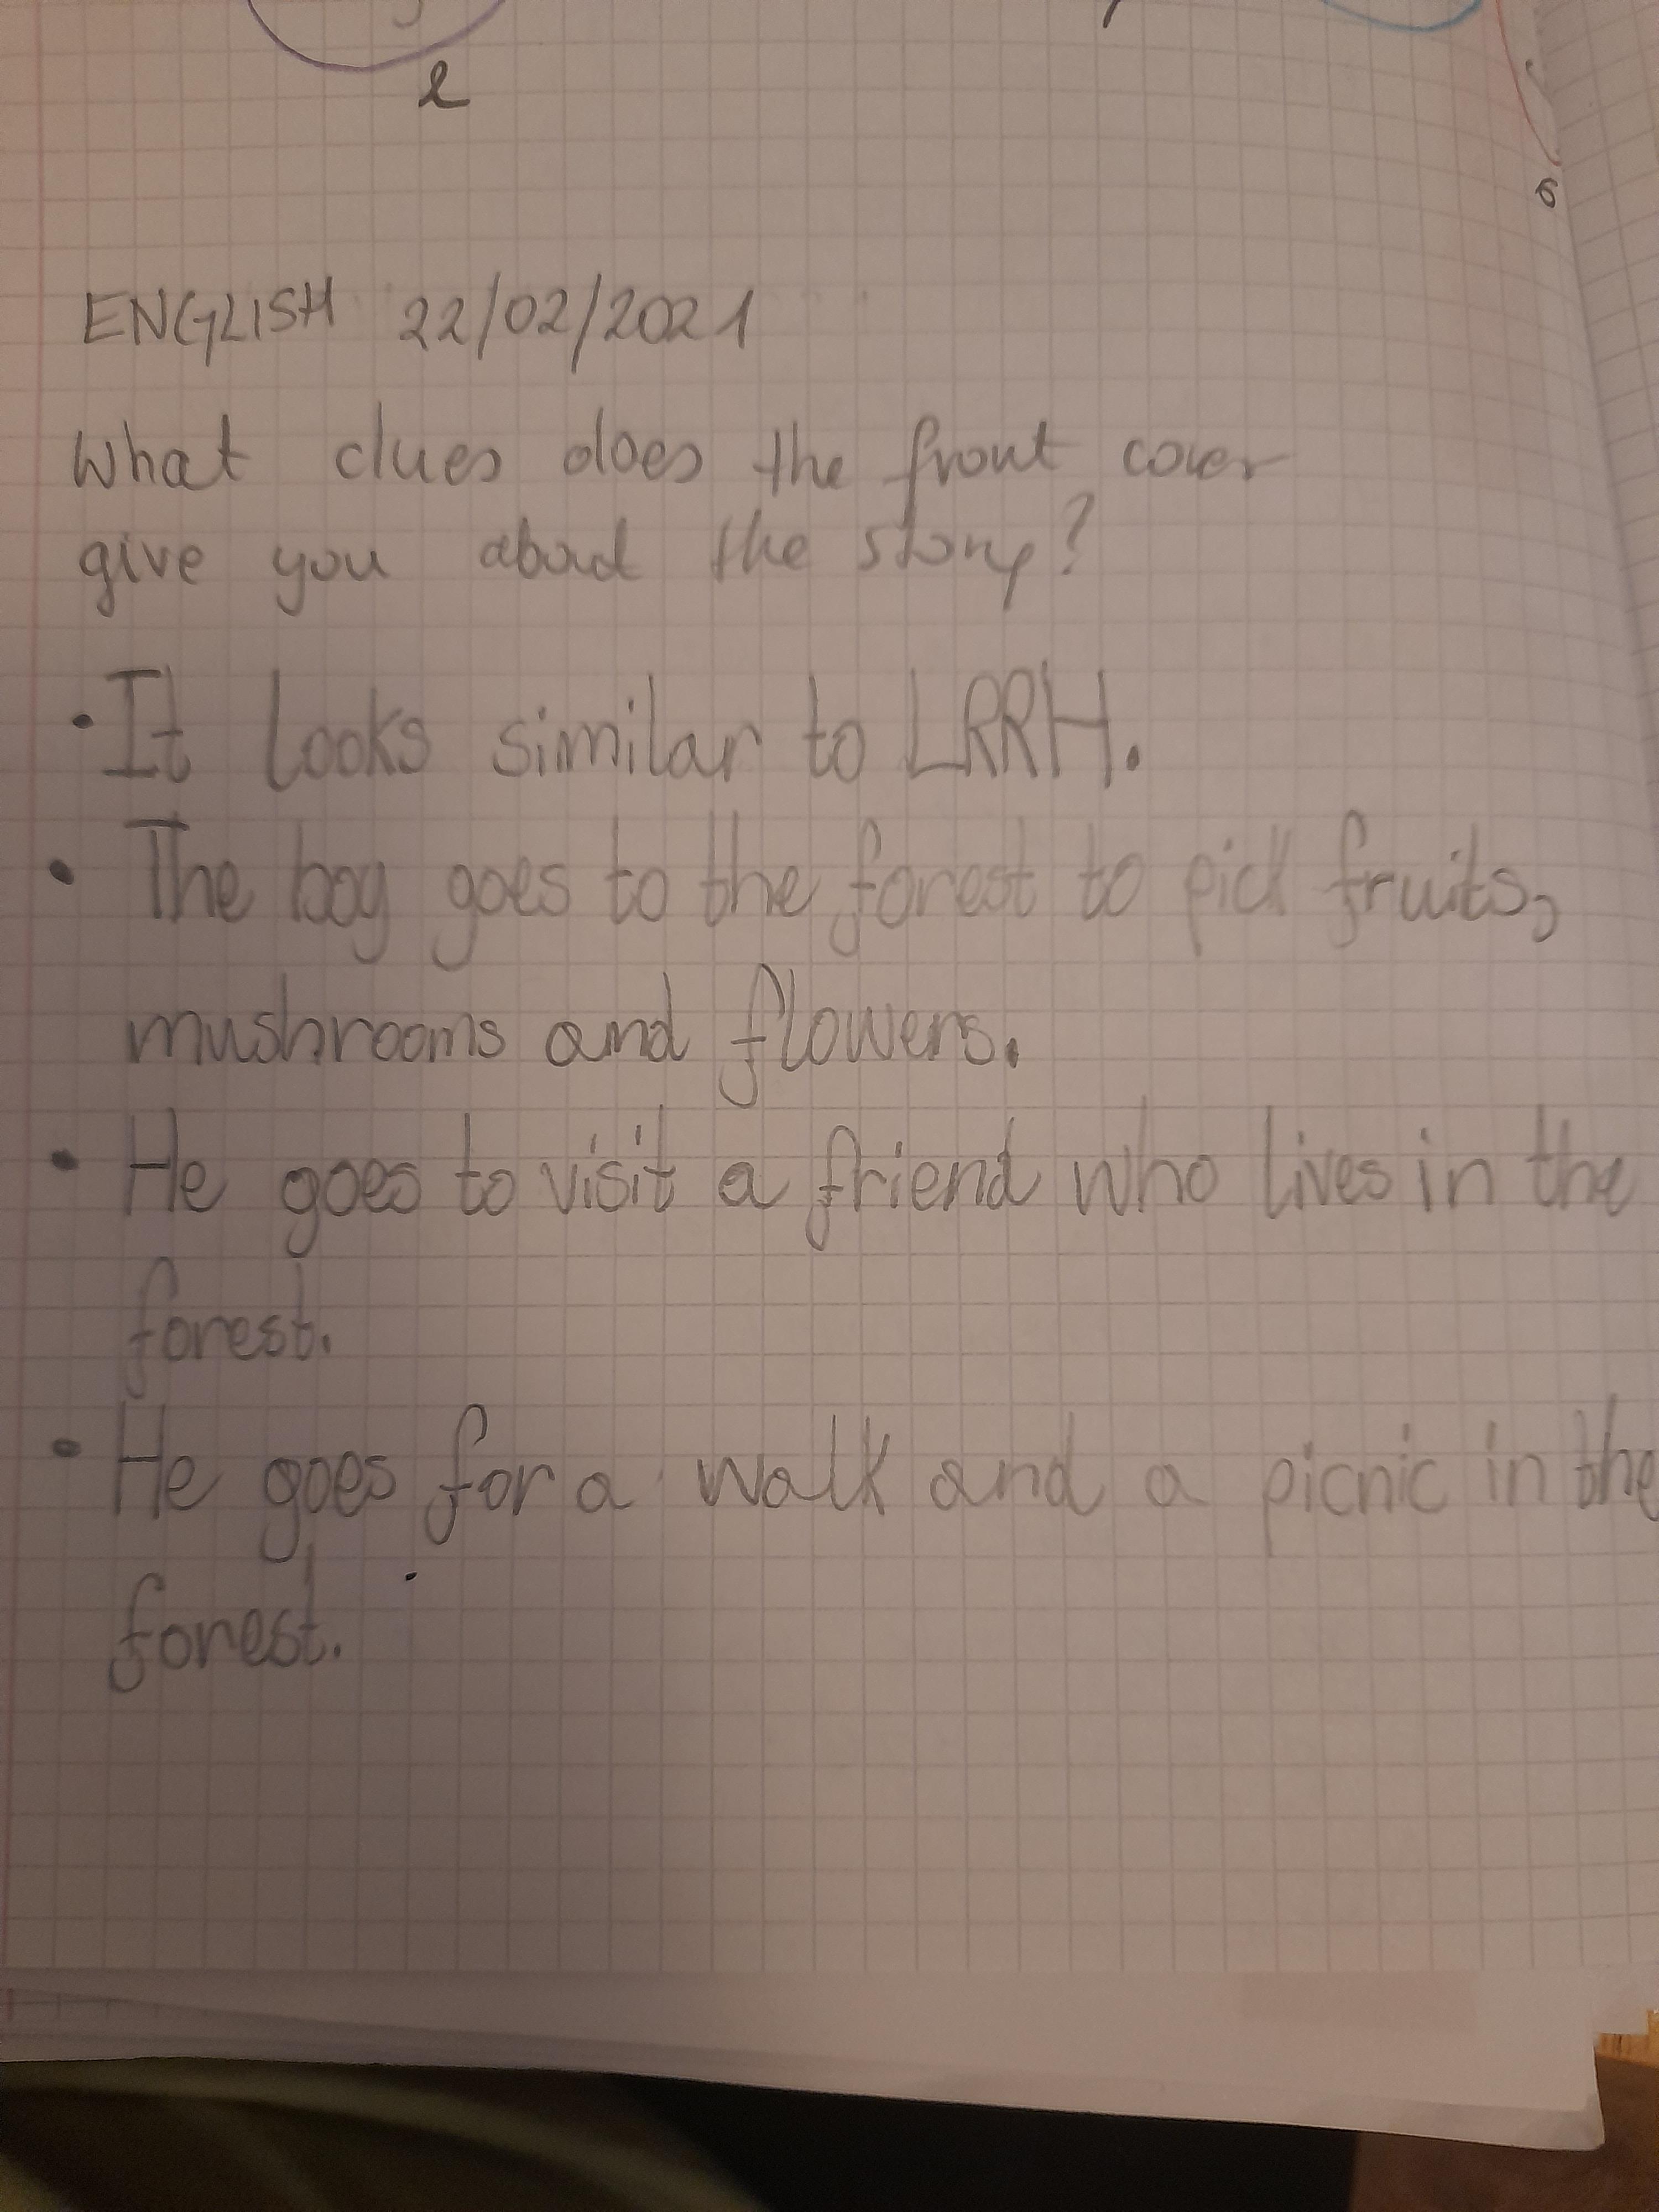 2
6
ENGLISH 22/02/2021
What clues does the front cover
give you about the story?
• It looks similar to LRRH.
• The boy goes to the forest to pick fruits,
mushrooms and flowers.
• He goes to visit a friend who lives in the
forest.
• He goes for a walk and a picnic in the
forest.